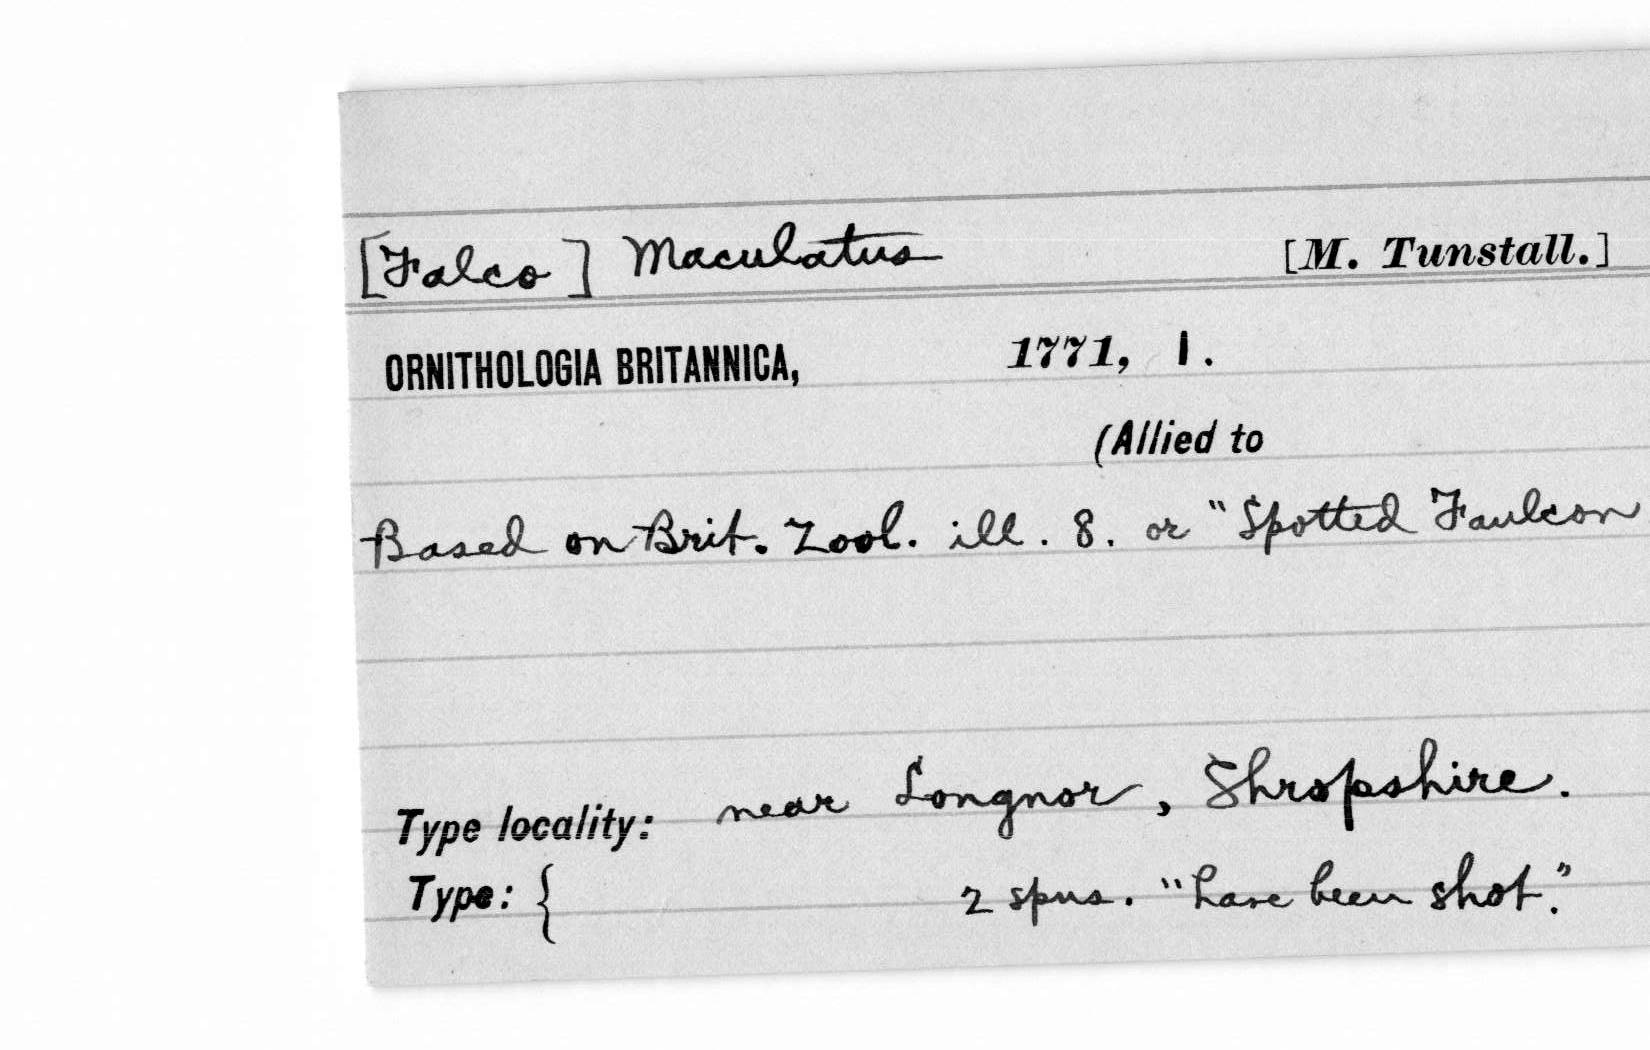 [Falco] Maculatus [M. Tunstall.]
ORNITHOLOGIA BRITANNICA, 1771, 1.
(Allied to
Based on Brit. Zool. ill. 8. or "Spotted Faulcon
Type locality: near Longnor, Shropshire.
Type: { 2 spns. "have been shot."